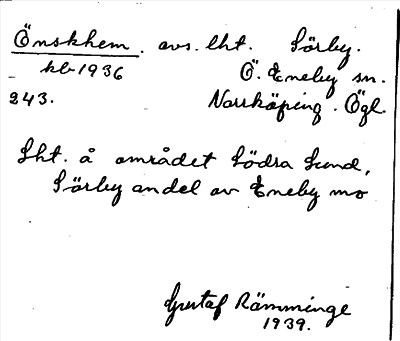 Önskhem. avs. lht. Sörby.
kb 1936 Ö. Eneby sn.
243. Norrköping. Ögl.
Lht. å området Södra Sund,
Sörby andel av Eneby mo
Gustaf Rämminge
1939.